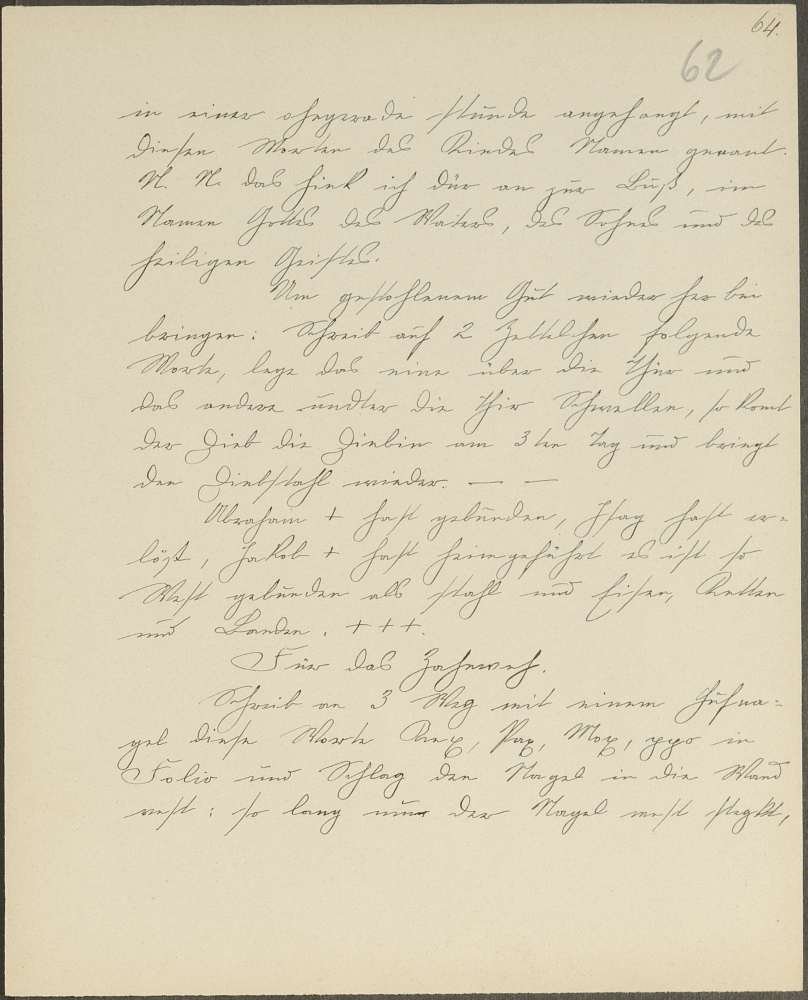 64.
62
in einer ohngerade Stunde angehengt, mit
diesen Worten des Kindes Namen genant.
N. N. das henk ich dür an zur Buß, im
Namen Gottes des Vaters, des Sohnes und des
heiligen Geistes.
Um gestohlenem Gut wieder her bei
bringen: Schreib auf 2 Zettelchen folgende
Worte, lege das eine über die Thür und
das andere undter die Thir Schwellen, so komt
der Dieb die Diebin am 3ten Tag und bringt
den Diebstahl wieder. — —
Abraham + hast gebunden, Isag hast er=
löst, Jakob + hast heimgeführt es ist so
West gebunden als stahl und Eisen, Ketten
und Banden. +++.
Für das Zahnweh.
Schreib an 3 Weg mit einem Hufna=
gel diese Worte Rex, Pax, Mox, in
Folio und Schlag den Nagel in die Wand
vest: so lang nur der Nagel vest stegkt,